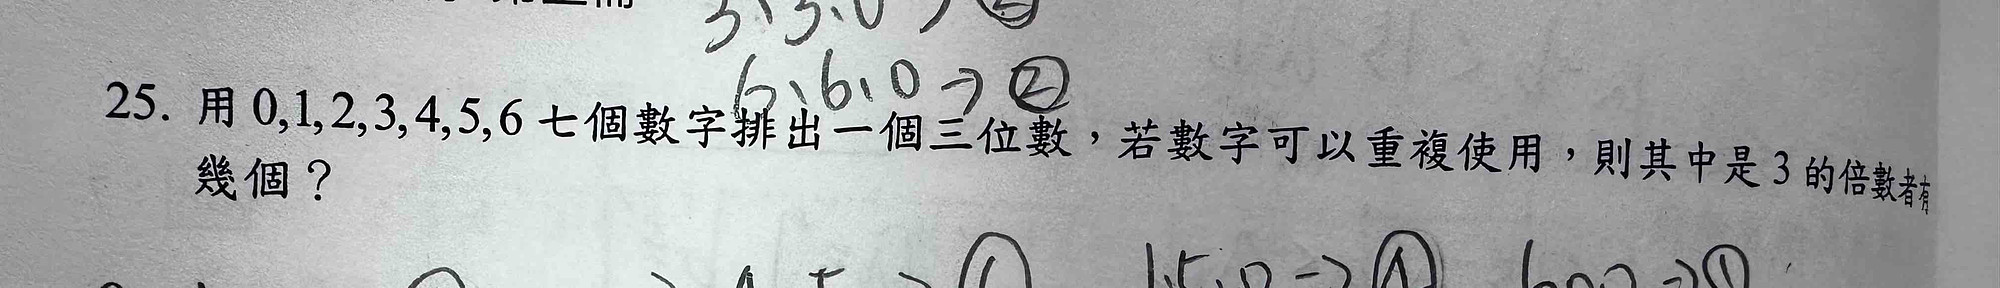 3、3、0→②
6、6、0→②
25. 用 0,1,2,3,4,5,6 七個數字排出一個三位數，若數字可以重複使用，則其中是 3 的倍數者有
幾個？
1、5、0→④ 600→①